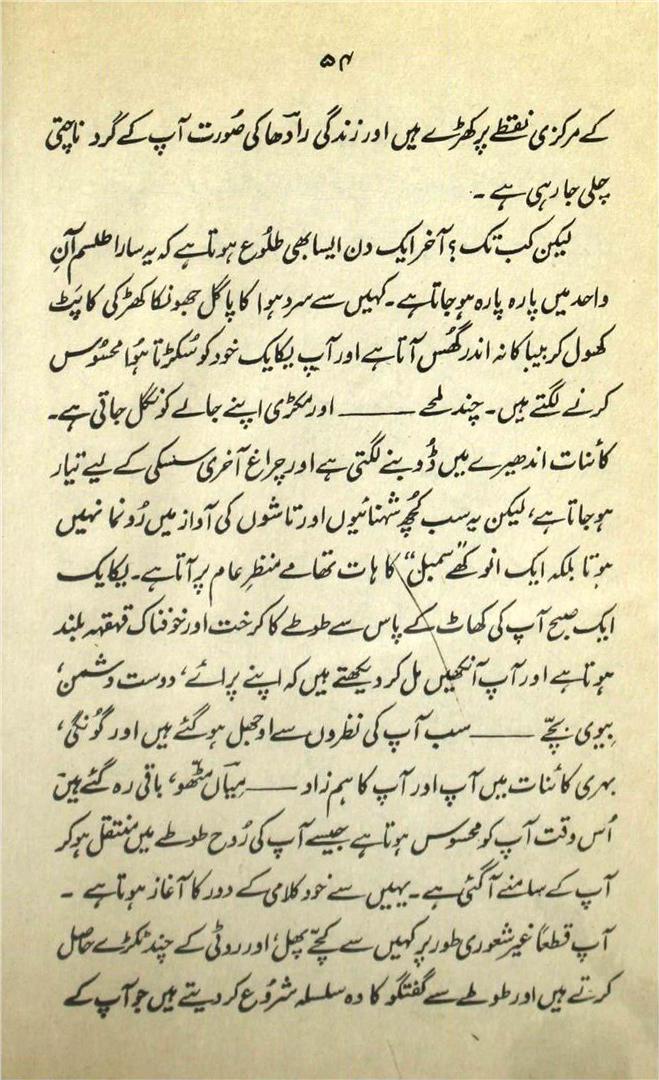 ۵۴
کے مرکزی نقطے پر کھڑے ہیں اور زندگی رادھا کی صُورت آپ کے گرد ناچتی
چلی جا رہی ہے ۔
لیکن کب تک ؟ آخر ایک دن ایسا بھی طلُوع ہوتا ہے کہ یہ سارا طلسم آنِ
واحد میں پارہ پارہ ہو جاتا ہے ۔ کہیں سے سرد ہوا کا پاگل جھونکا کھڑکی کا پَٹ
کھول کر بیباکانہ اندر گھُس آتا ہے اور آپ یکایک خود کو سُکڑتا ہُوا محسُوس
کرنے لگتے ہیں ۔ چند لمحے ——— اور مکڑی اپنے جالے کو نگل جاتی ہے ۔
کائنات اندھیرے میں ڈُوبنے لگتی ہے اور چراغ آخری سسکی کے لیے تیار
ہو جاتا ہے ، لیکن یہ سب کچُھ شہنائیوں اور تاشوں کی آواز میں رُونما نہیں
ہوتا بلکہ ایک انوکھے ”سمبل“ کا ہات تھامے منظرِ عام پر آتا ہے ۔ یکایک
ایک صبح آپ کی کھاٹ کے پاس سے طوطے کا کرخت اور خوفناک قہقہہ بلند
ہوتا ہے اور آپ آنکھیں مل کر دیکھتے ہیں کہ اپنے پرائے ، دوست دشمن ،
بیوی بچّے ——— سب آپ کی نظروں سے اوجھل ہو گئے ہیں اور گُونگی ،
بہری کائنات میں آپ اور آپ کا ہم زاد ——— میاں مٹّھو ، باقی رہ گئے ہیں
اُس وقت آپ کو محسوس ہوتا ہے جیسے آپ کی رُوح طوطے میں منتقل ہو کر
آپ کے سامنے آ گئی ہے ۔ یہیں سے خود کلامی کے دور کا آغاز ہوتا ہے ۔
آپ قطعاً غیر شعوری طور پر کہیں سے کچّے پھل اور روٹی کے چند ٹکڑے حاصل
کرتے ہیں اور طوطے سے گفتگو کا وہ سلسلہ شرُوع کر دیتے ہیں جو آپ کے